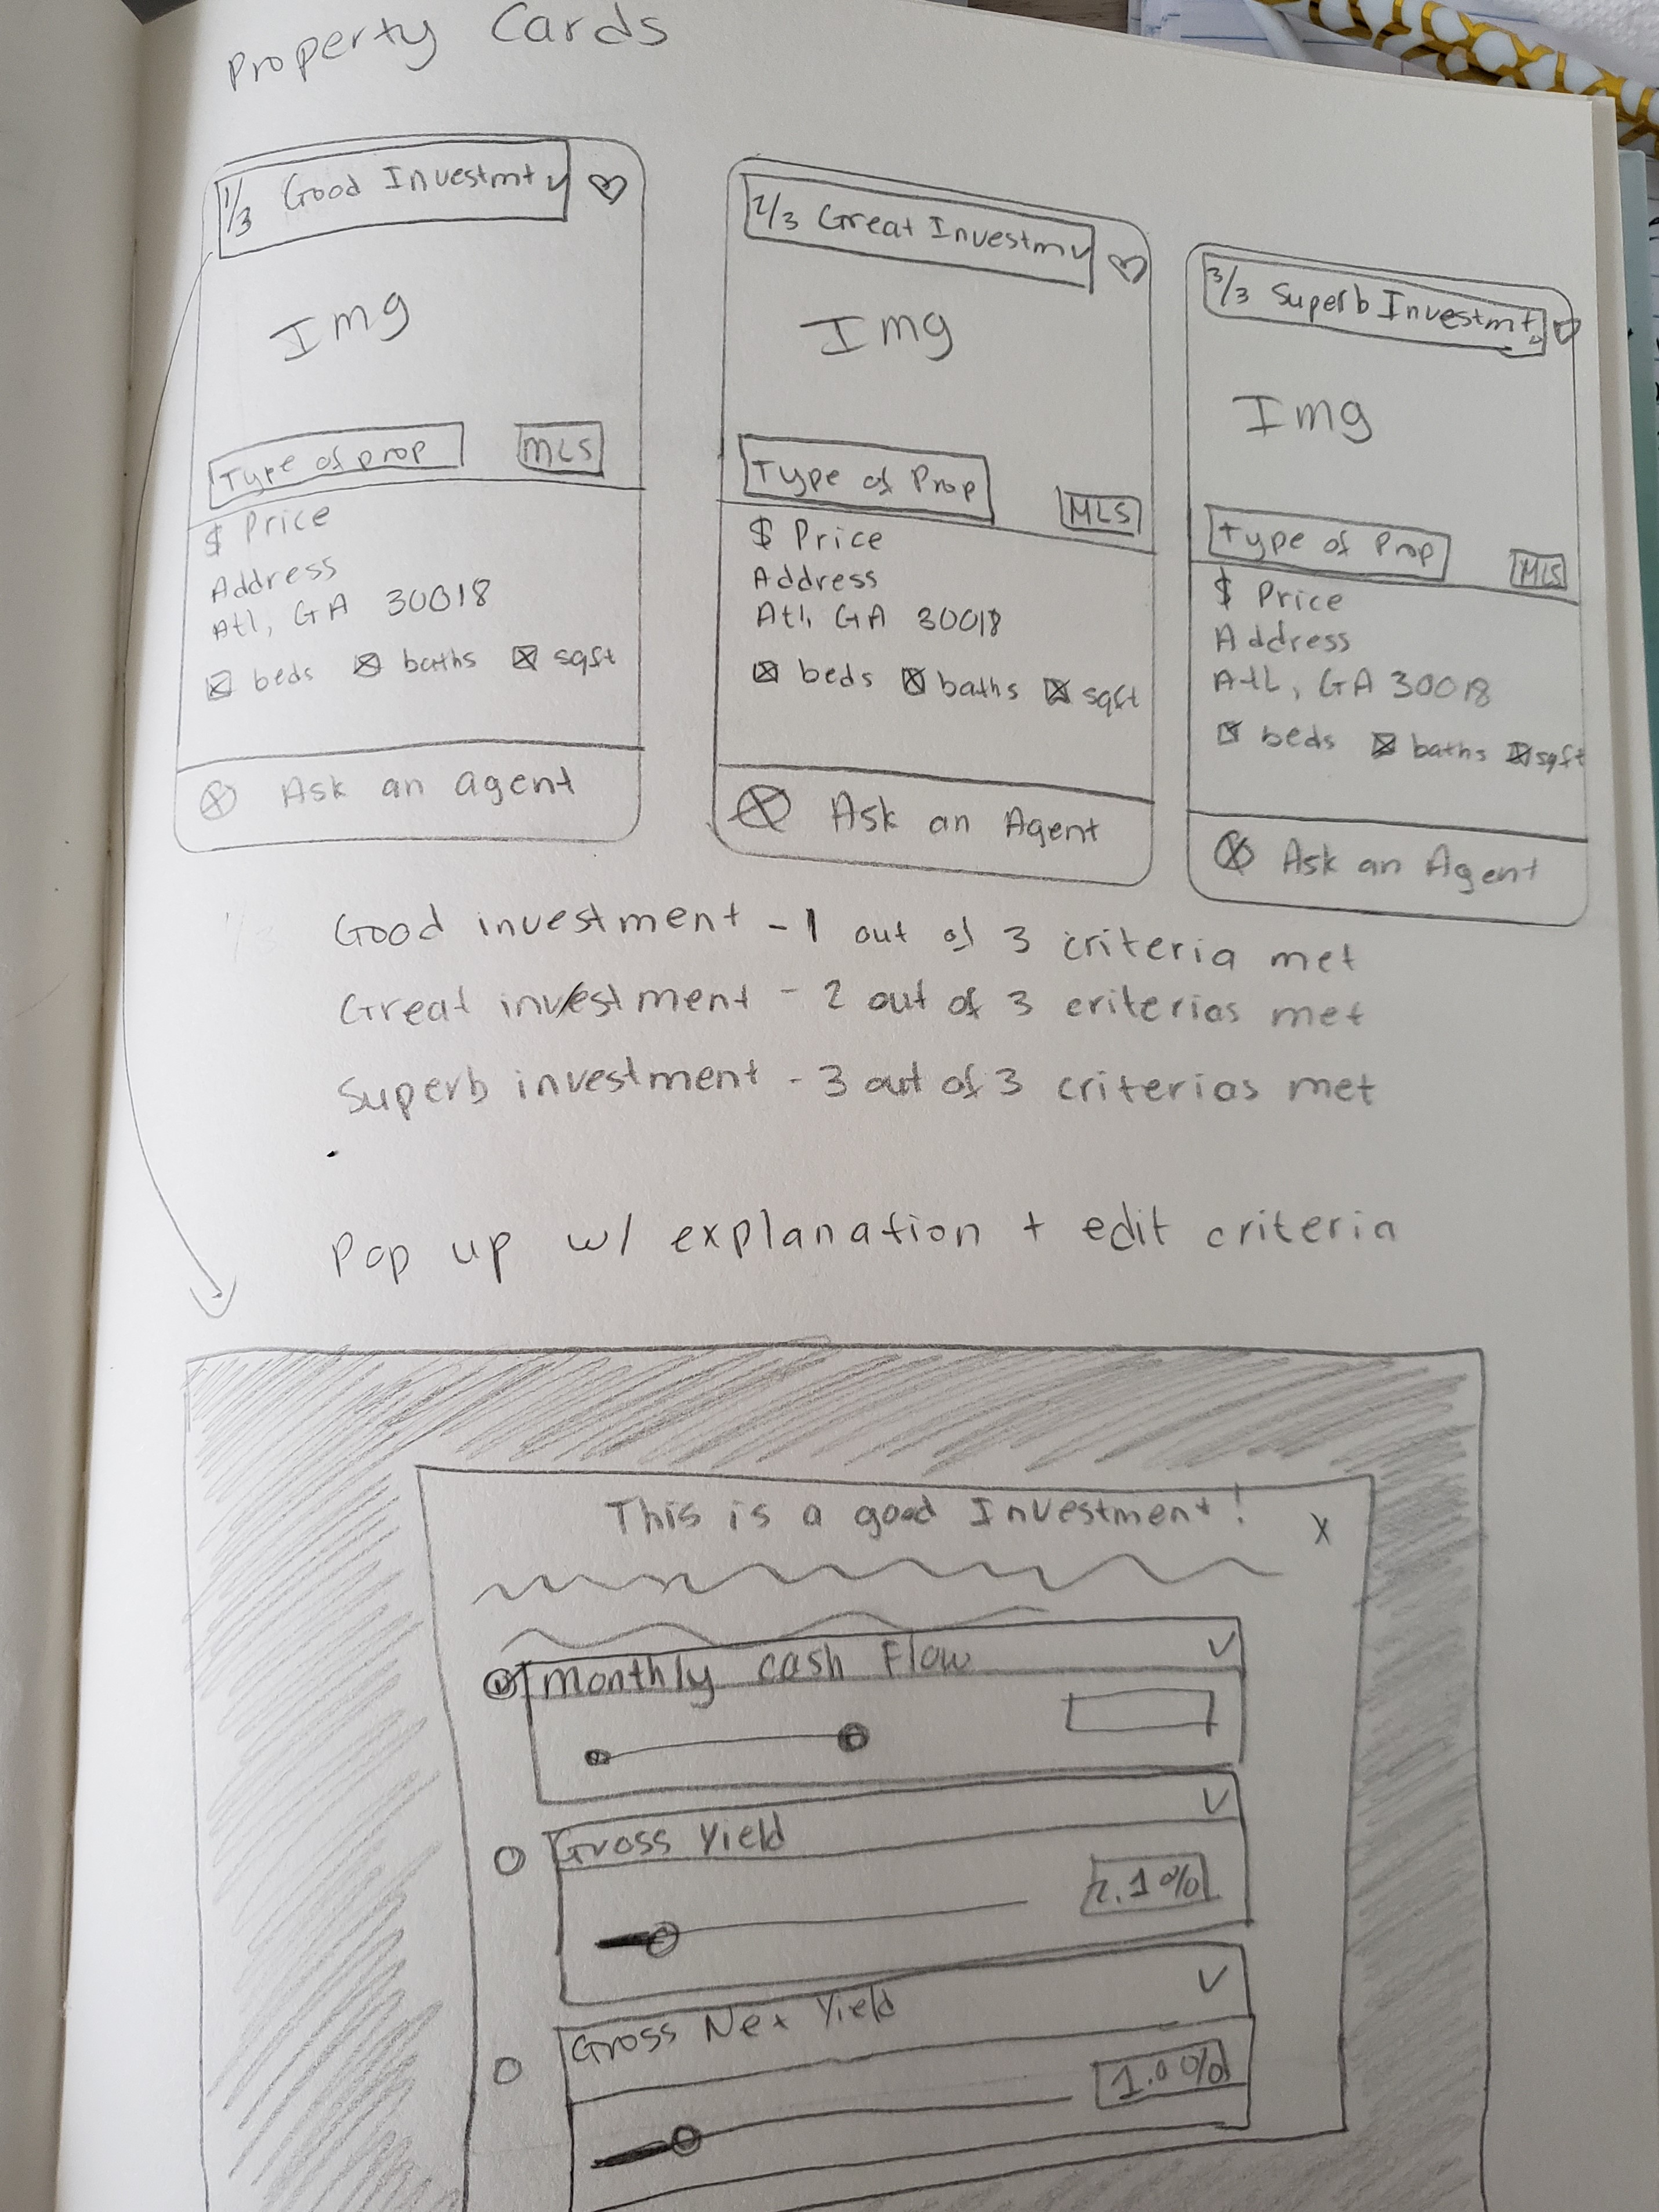 Property Cards
1/3 Good Investmt
Img
Type of prop MLS
$ Price
Address
Atl, GA 30018
beds baths sqft
Ask an agent
2/3 Great Investm
Img
Type of Prop MLS
$ Price
Address
Atl, GA 30018
beds baths sqft
Ask an Agent
3/3 Superb Investmt
Img
Type of Prop MLS
$ Price
Address
Atl, GA 30018
beds baths sqft
Ask an Agent
1/3
Good investment - 1 out of 3 criteria met
Great investment - 2 out of 3 criterias met
Superb investment - 3 out of 3 criterias met
Pop up w/ explanation + edit criteria
This is a good Investment! X
Monthly cash Flow
Gross Yield
2.1%
Gross Net Yield
1.0%